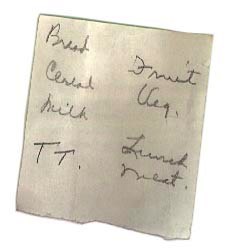 Bread
Cereal
Milk
TT.
Fruit
Veg.
Lunch
meat.